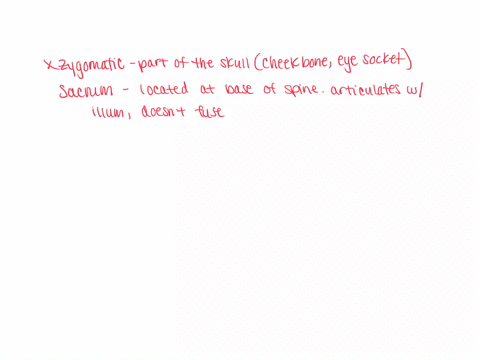 x zygomatic - part of the skull (cheekbone, eye socket)
Sacrum - located at base of spine. articulates w/
illum, doesnt fuse